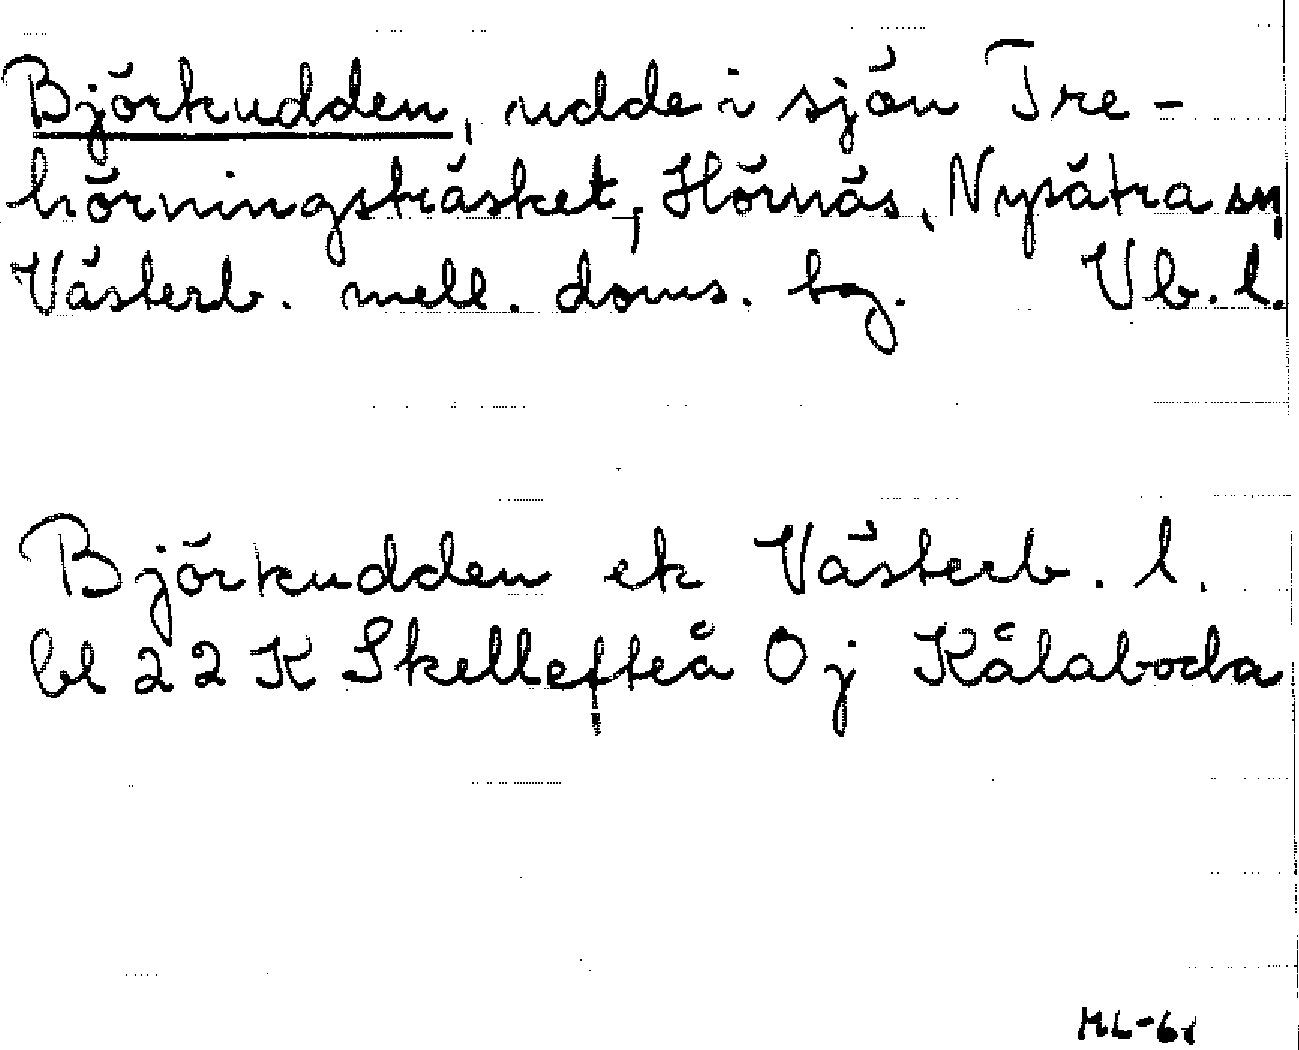 Björkudden, udde i sjön Tre-
hörningsträsket, Hörnäs, Nysätra sn
Västerb. mell. doms. bg. Vb. l.
Björkudden ek Västerb. l.
bl 22 K Skellefteå Oj Kålaboda
ML-61